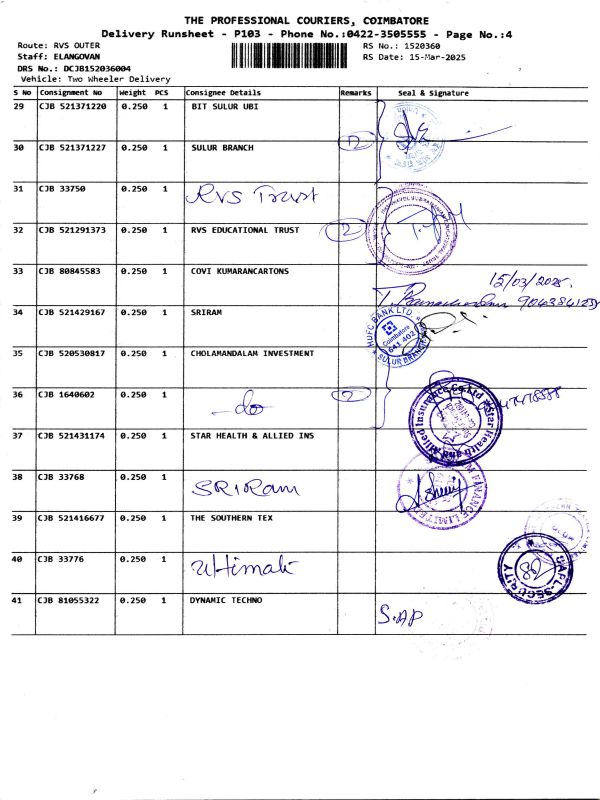 THE PROFESSIONAL COURIERS, COIMBATORE
Delivery Runsheet - P103 - Phone No.:0422-3505555 - Page No.:4
Route: RVS OUTER RS No.: 1520360
Staff: ELANGOVAN RS Date: 15-Mar-2025
DRS No.: DCJB152036004
Vehicle: Two Wheeler Delivery
S No Consignment No Weight PCS Consignee Details Remarks Seal & Signature
29 CJB 521371220 0.250 1 BIT SULUR UBI
30 CJB 521371227 0.250 1 SULUR BRANCH
31 CJB 33750 0.250 1 RVS Trust
32 CJB 521291373 0.250 1 RVS EDUCATIONAL TRUST 2
33 CJB 80845583 0.250 1 COVI KUMARANCARTONS
15/03/2025.
34 CJB 521429167 0.250 1 SRIRAM
HDFC BANK LTD.
Coimbatore
641 402
SULUR BRANCH
35 CJB 520530817 0.250 1 CHOLAMANDALAM INVESTMENT
36 CJB 1640602 0.250 1 -do 2
Star Health and Allied Insurance Co Ltd
37 CJB 521431174 0.250 1 STAR HEALTH & ALLIED INS
38 CJB 33768 0.250 1 SRIRam
FINANCE LIMITED
39 CJB 521416677 0.250 1 THE SOUTHERN TEX
40 CJB 33776 0.250 1
SECURITY
41 CJB 81055322 0.250 1 DYNAMIC TECHNO
S.AP